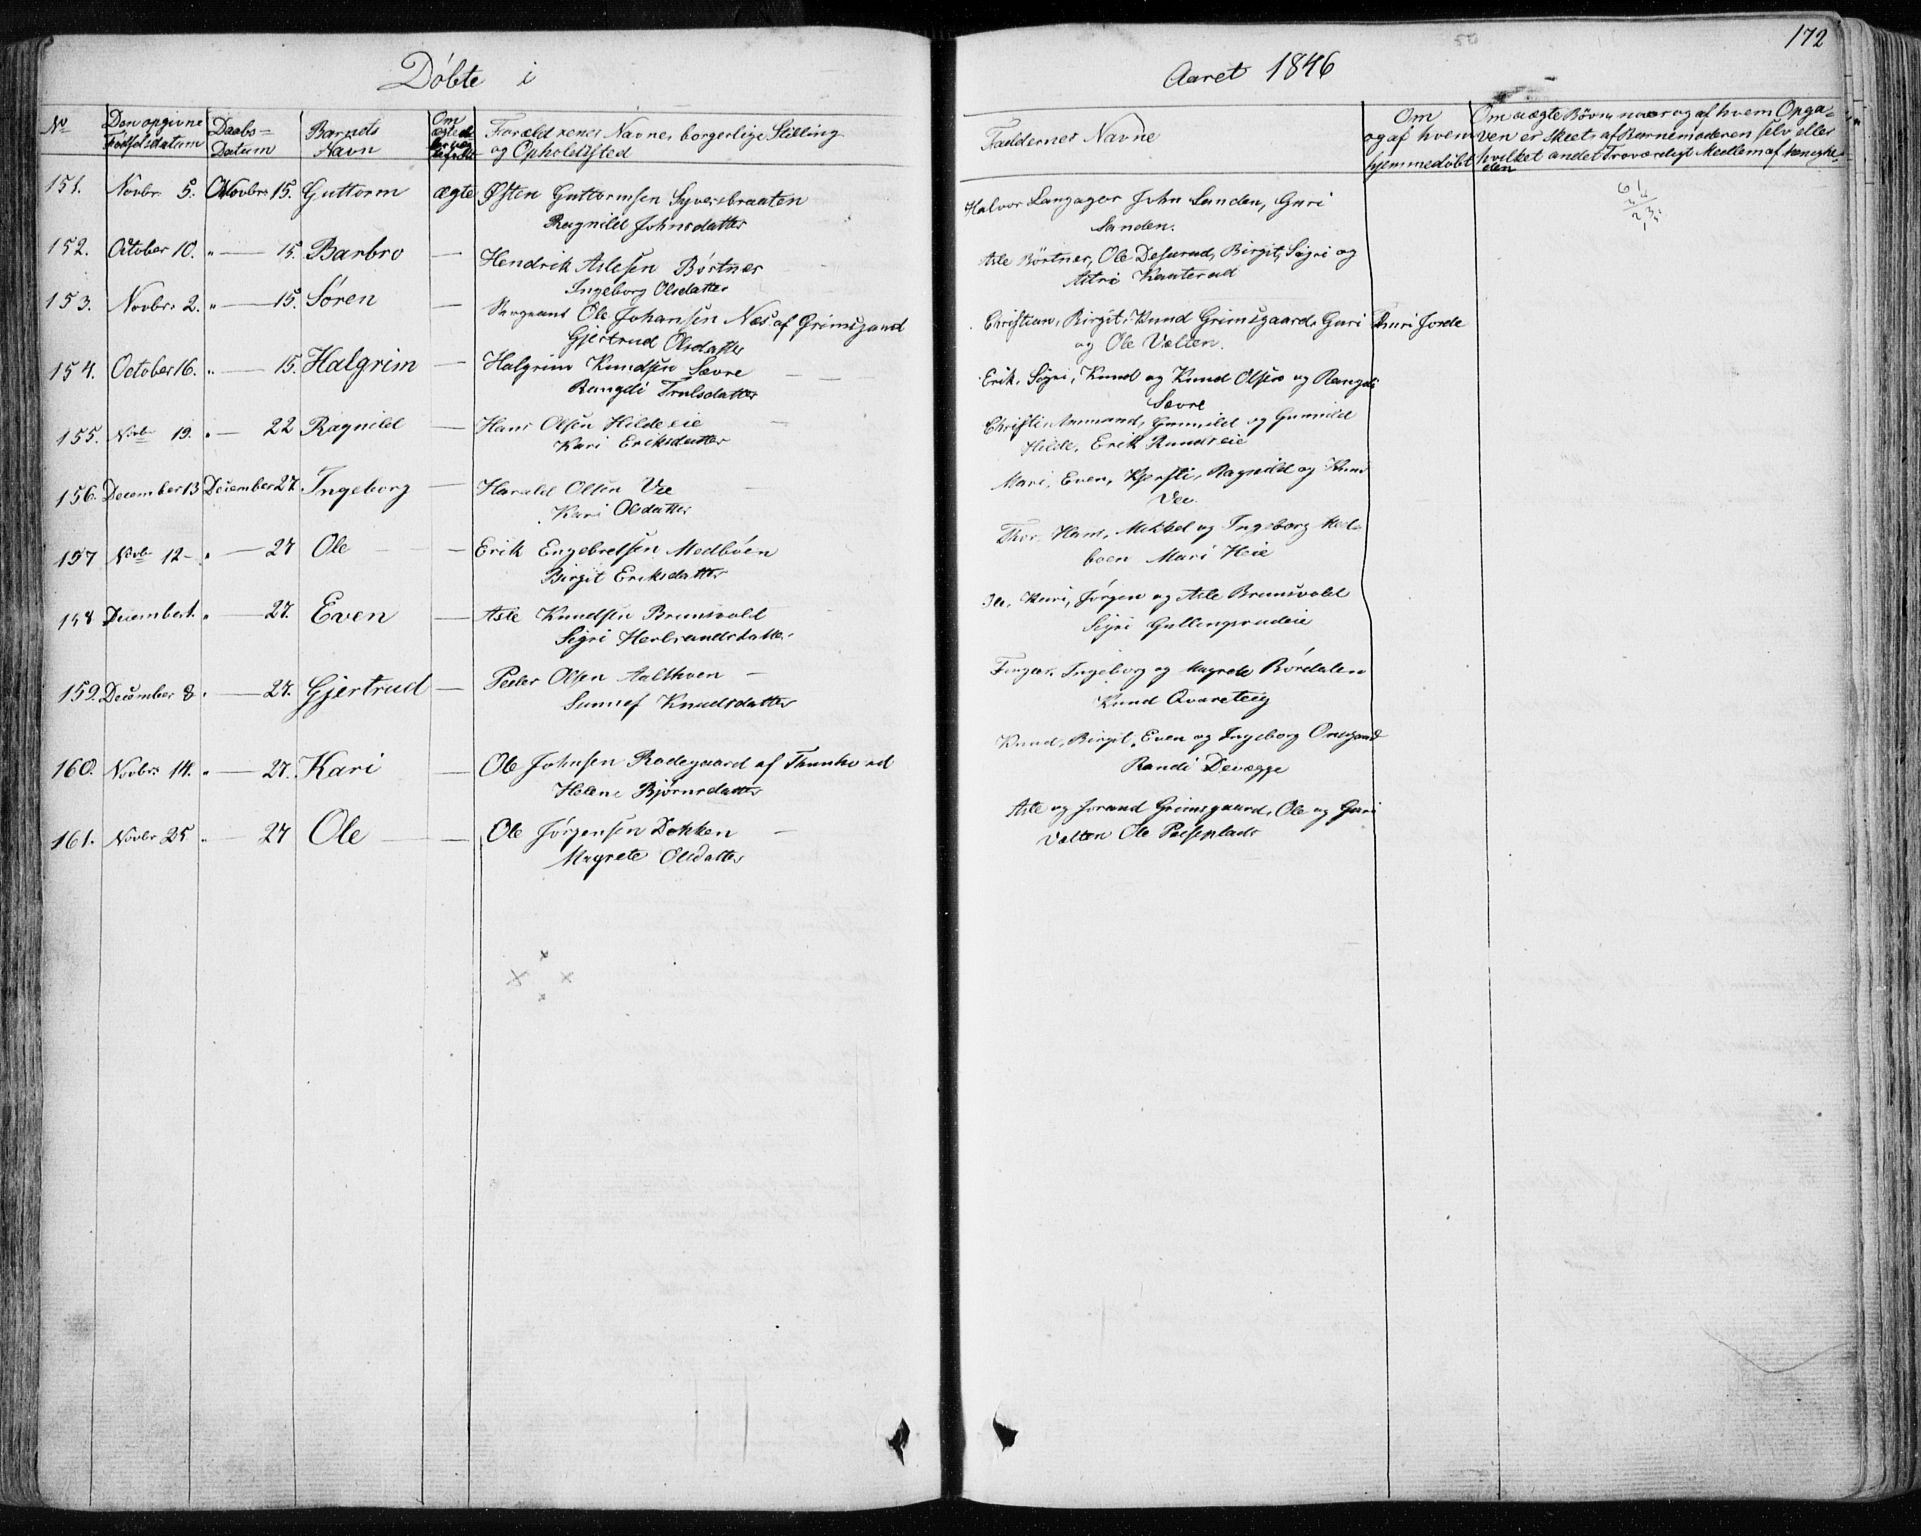 Døbte i
Aaret 1846
172
No
Den opgivne
Fødselsdatum
Daabs-
Datum
Barnets
Navn
Om
ægte
Forældrenes Navne, borgerlige Stilling
og Opholdssted
Faddernes Navne
Om
og af hvem
hjemmedøbt
Om uægte Børn, naar og af hvem Opga-
ven er skeet af Barnemoderen selv eller
hvilket andet Troværdigt Medlem af Menighe-
den
151. Novbr. 5. Novbr. 15. Guttorm ægte Østen Guttormsen Syversbraaten
Ragnild Johnsdatter
Halvor Langager John Sanden, Guri
Sanden.
152. October 10. " — 15. Barbro — Hendrik Aslesen Børtner
Ingeborg Olsdatter
Asle Børtner, Ole Desurud, Birgit, Sigri og
Astri Kauterud
153. Novbr. 2. " — 15. Søren — Sergeant Ole Johansen Næs af Grimsgaard
Gjertrud Olsdatter
Christian, Birgit, Knud Grimsgaard, Guri
og Ole Vælten.
Thuri Jorde
154. October 16. " — 15. Halgrim — Halgrim Knudsen Sævre
Rangdi Trulsdatter
Erik, Sigri, Knud og Knud Olsen og Rangdi
Sævre
155. Novb 19. " — 22 Ragnild — Hans Olsen Hilde eie
Kari Eriksdatter
Christi, Aamund, Gunnild og Gunnild
Hilde, Erik Rundseie
156. December 13 December 27. Ingeborg — Harald Olsen Vee
Kari Olsdatter
Mari, Even, Kjersti, Ragnild og
Vee.
157 Novb 12 " — 27 Ole — Erik Engebretsen Medbøen
Birgit Eriksdatter
Thor, Hans, Mikkel og Ingeborg Med-
boen Mari Heie
158 December 1. " — 27. Even — Asle Knudsen Brunsvold
Sigri Herbrandsdatter
Ole, Kari, Jørgen og Asle Brunsvold
Sigri Gullingsrudeie
159. December 8 " — 27. Gjertrud — Peder Olsen Aalthuen
Sunnef Knudsdatter
Ingeborg og Magrete Rørdalen
Knud Qvareteig
160. Novbr. 14. " — 27. Kari — Ole Johnsen Rodegaard af Thunhovd
Helene Bjørnsdatter
Knud, Birgit, Even og Ingeborg
Randi Devægge
161. Novbr 25 " — 27 Ole — Ole Jørgensen Dokken
Magrete Olsdatter
Asle og Jorand Grimsgaard, Ole og Guri
Vælten Ole Peiseplads